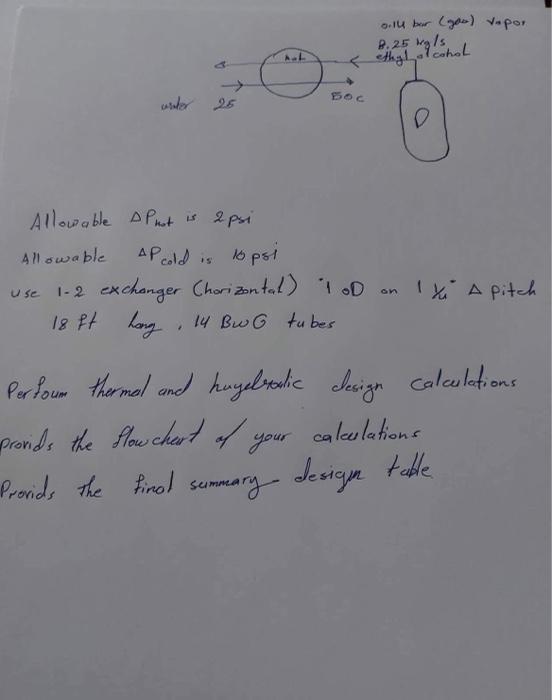 0.14 bar (gas) vapor
8.25 kg/s
ethyl alcohol
hot
water 25 50 C
D
Allowable ΔPhot is 2 psi
Allowable ΔPcold is 10 psi
use 1-2 exchanger (horizontal) 1" OD on 1 ¼" Δ pitch
18 ft long, 14 BWG tubes
Perfoum thermal and design calculations
provids the flowchart of your calculations
Provids the final summary design table